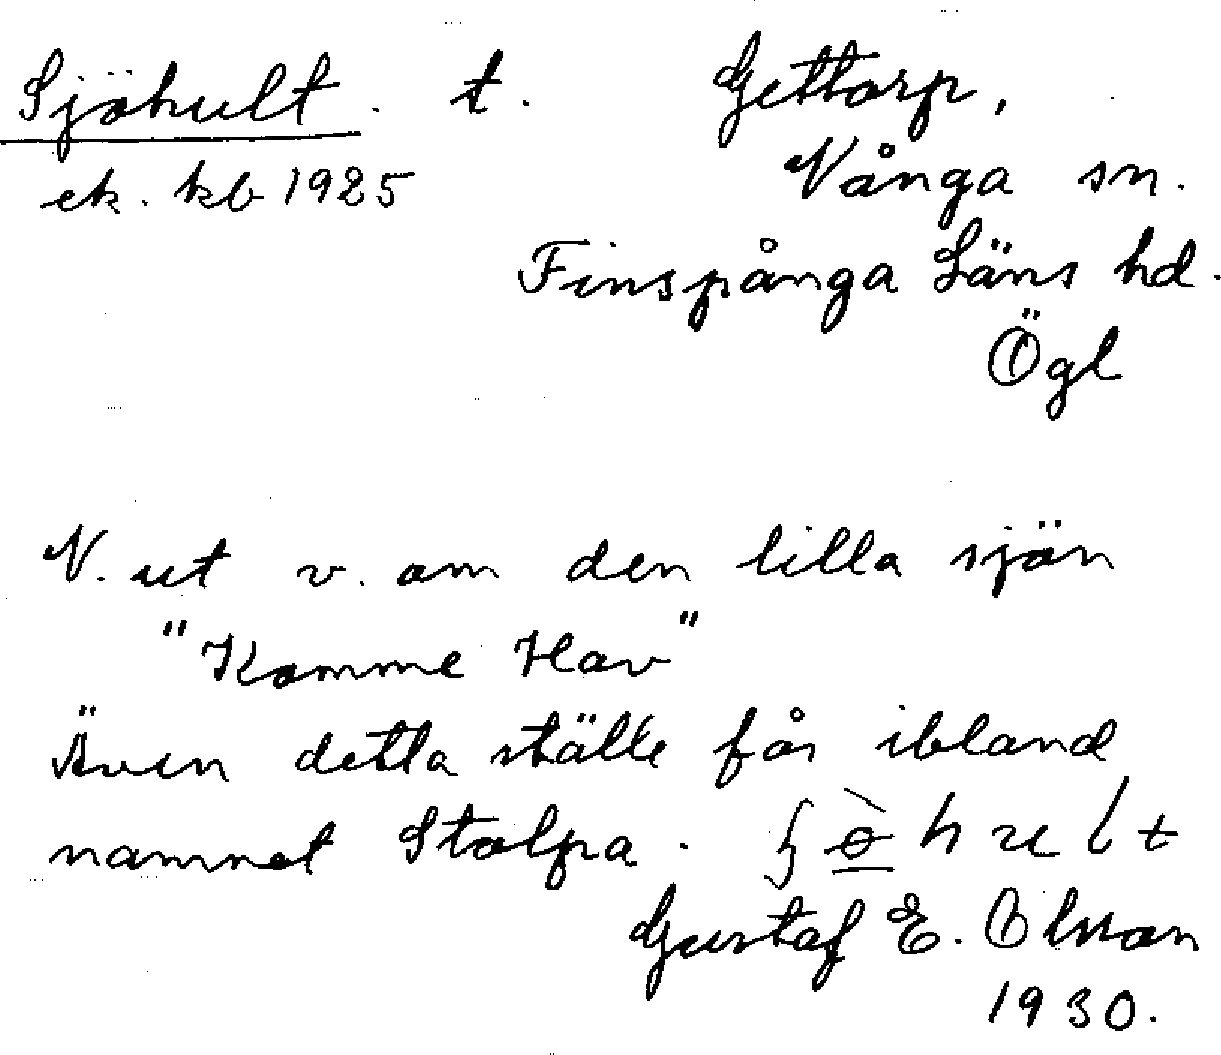 Sjöhult. t. Gettorp,
ek. kb 1925 Vånga sn.
Finspånga Läns hd.
Ögl
N. ut v. om den lilla sjön
"Komme Hav"
Även detta ställe får ibland
namnet Stolpa. ʃø̀hult
Gustaf E. Olsson
1930.